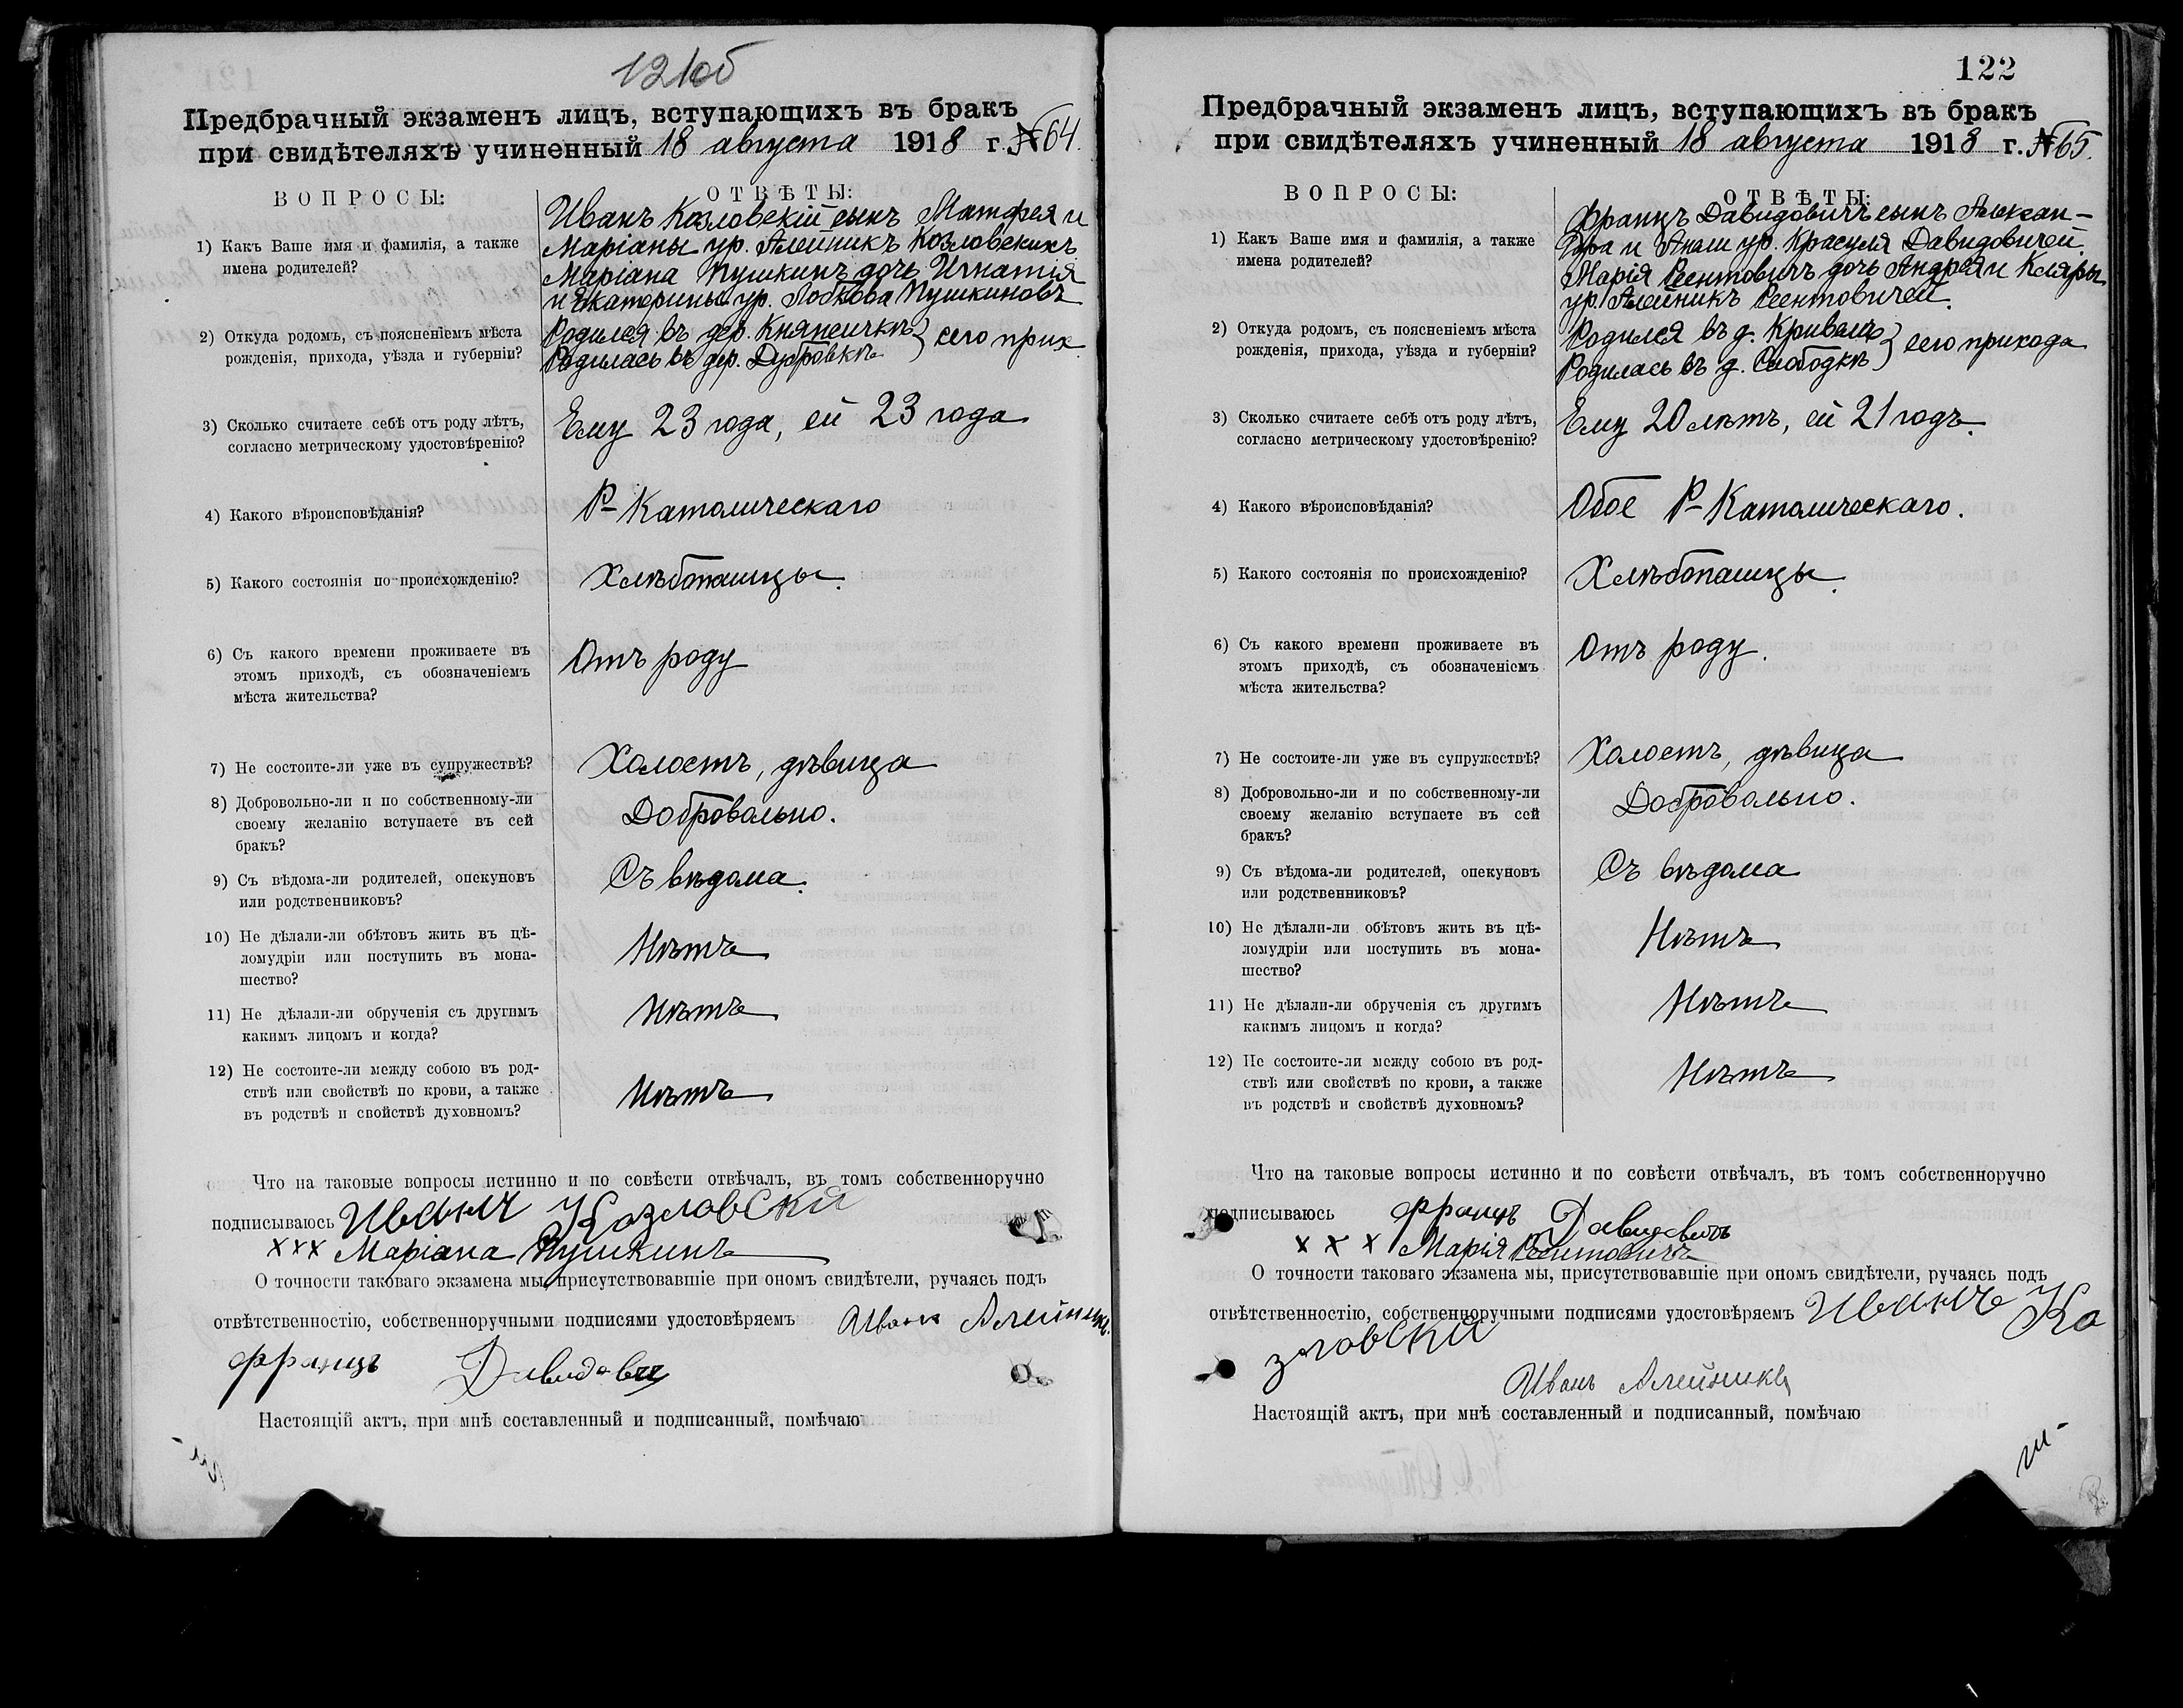 121об
Предбрачный экзаменъ лицъ, вступающихъ въ бракъ
при свидѣтеляхъ учиненный 18 августа 1918 г. №64.
ВОПРОСЫ:
ОТВѢТЫ:
1) Какъ Ваше имя и фамилія, а также
имена родителей?
Иванъ Козловскій сынъ Матфея и
Маріаны ур. Алейникъ Козловскихъ
Маріана Пушкинъ дочь Игнатія
и Екатерины ур. Лобкова Пушкиновъ
2) Откуда родомъ, съ поясненіемъ мѣста
рожденія, прихода, уѣзда и губерніи?
Родился въ дер. Княжичкѣ } сего прих.
Родилась въ дер. Дубровкѣ
3) Сколько считаете себѣ отъ роду лѣтъ,
согласно метрическому удостовѣренію?
Ему 23 года, ей 23 года
4) Какого вѣроисповѣданія?
Р-Католическаго
5) Какого состоянія по происхожденію?
Хлѣбопашцы.
6) Съ какого времени проживаете въ
этомъ приходѣ, съ обозначеніемъ
мѣста жительства?
Отъ роду
7) Не состоите-ли уже въ супружествѣ?
Холостъ, дѣвица
8) Добровольно-ли и по собственному-ли
своему желанію вступаете въ сей
бракъ?
Добровольно.
9) Съ вѣдома-ли родителей, опекуновъ
или родственниковъ?
Съ вѣдома.
10) Не дѣлали-ли обѣтовъ жить въ цѣ-
ломудріи или поступить въ мона-
шество?
Нѣтъ
11) Не дѣлали-ли обрученія съ другимъ
какимъ лицомъ и когда?
Нѣтъ
12) Не состоите-ли между собою въ род-
ствѣ или свойствѣ по крови, а также
въ родствѣ и свойствѣ духовномъ?
Нѣтъ
Что на таковые вопросы истинно и по совѣсти отвѣчалъ, въ томъ собственноручно
подписываюсь Иванъ Козловскій
xxx Маріана Пушкинъ
О точности таковаго экзамена мы, присутствовавшіе при ономъ свидѣтели, ручаясь подъ
отвѣтственностію, собственноручными подписями удостовѣряемъ Иванъ Алейникъ.
Францъ Давидович
Настоящій актъ, при мнѣ составленный и подписанный, помѣчаю
122
Предбрачный экзаменъ лицъ, вступающихъ въ бракъ
при свидѣтеляхъ учиненный 18 августа 1918 г. №65.
ВОПРОСЫ:
ОТВѢТЫ:
1) Какъ Ваше имя и фамилія, а также
имена родителей?
Францъ Давидовичъ сынъ Алексан-
дра и Анны ур. Красуля Давидовичей.
Марія Реентовичъ дочь Андрея и Кляры
ур. Алейникъ Реентовичей.
2) Откуда родомъ, съ поясненіемъ мѣста
рожденія, прихода, уѣзда и губерніи?
Родился въ д. } сего прихода
Родилась въ д. Слободкѣ
3) Сколько считаете себѣ отъ роду лѣтъ,
согласно метрическому удостовѣренію?
Ему 20 лѣтъ, ей 21 годъ.
4) Какого вѣроисповѣданія?
Обое Р-Католическаго.
5) Какого состоянія по происхожденію?
Хлѣбопашцы.
6) Съ какого времени проживаете въ
этомъ приходѣ, съ обозначеніемъ
мѣста жительства?
Отъ роду.
7) Не состоите-ли уже въ супружествѣ?
Холостъ, дѣвица
8) Добровольно-ли и по собственному-ли
своему желанію вступаете въ сей
бракъ?
Добровольно.
9) Съ вѣдома-ли родителей, опекуновъ
или родственниковъ?
Съ вѣдома
10) Не дѣлали-ли обѣтовъ жить въ цѣ-
ломудріи или поступить въ мона-
шество?
Нѣтъ
11) Не дѣлали-ли обрученія съ другимъ
какимъ лицомъ и когда?
Нѣтъ
12) Не состоите-ли между собою въ род-
ствѣ или свойствѣ по крови, а также
въ родствѣ и свойствѣ духовномъ?
Нѣтъ
Что на таковые вопросы истинно и по совѣсти отвѣчалъ, въ томъ собственноручно
подписываюсь Францъ Давидовичъ
x x x Марія Реентовичъ
О точности таковаго экзамена мы, присутствовавшіе при ономъ свидѣтели, ручаясь подъ
отвѣтственностію, собственноручными подписями удостовѣряемъ Иванъ Ко
зловскій
Иванъ Алейникъ
Настоящій актъ, при мнѣ составленный и подписанный, помѣчаю